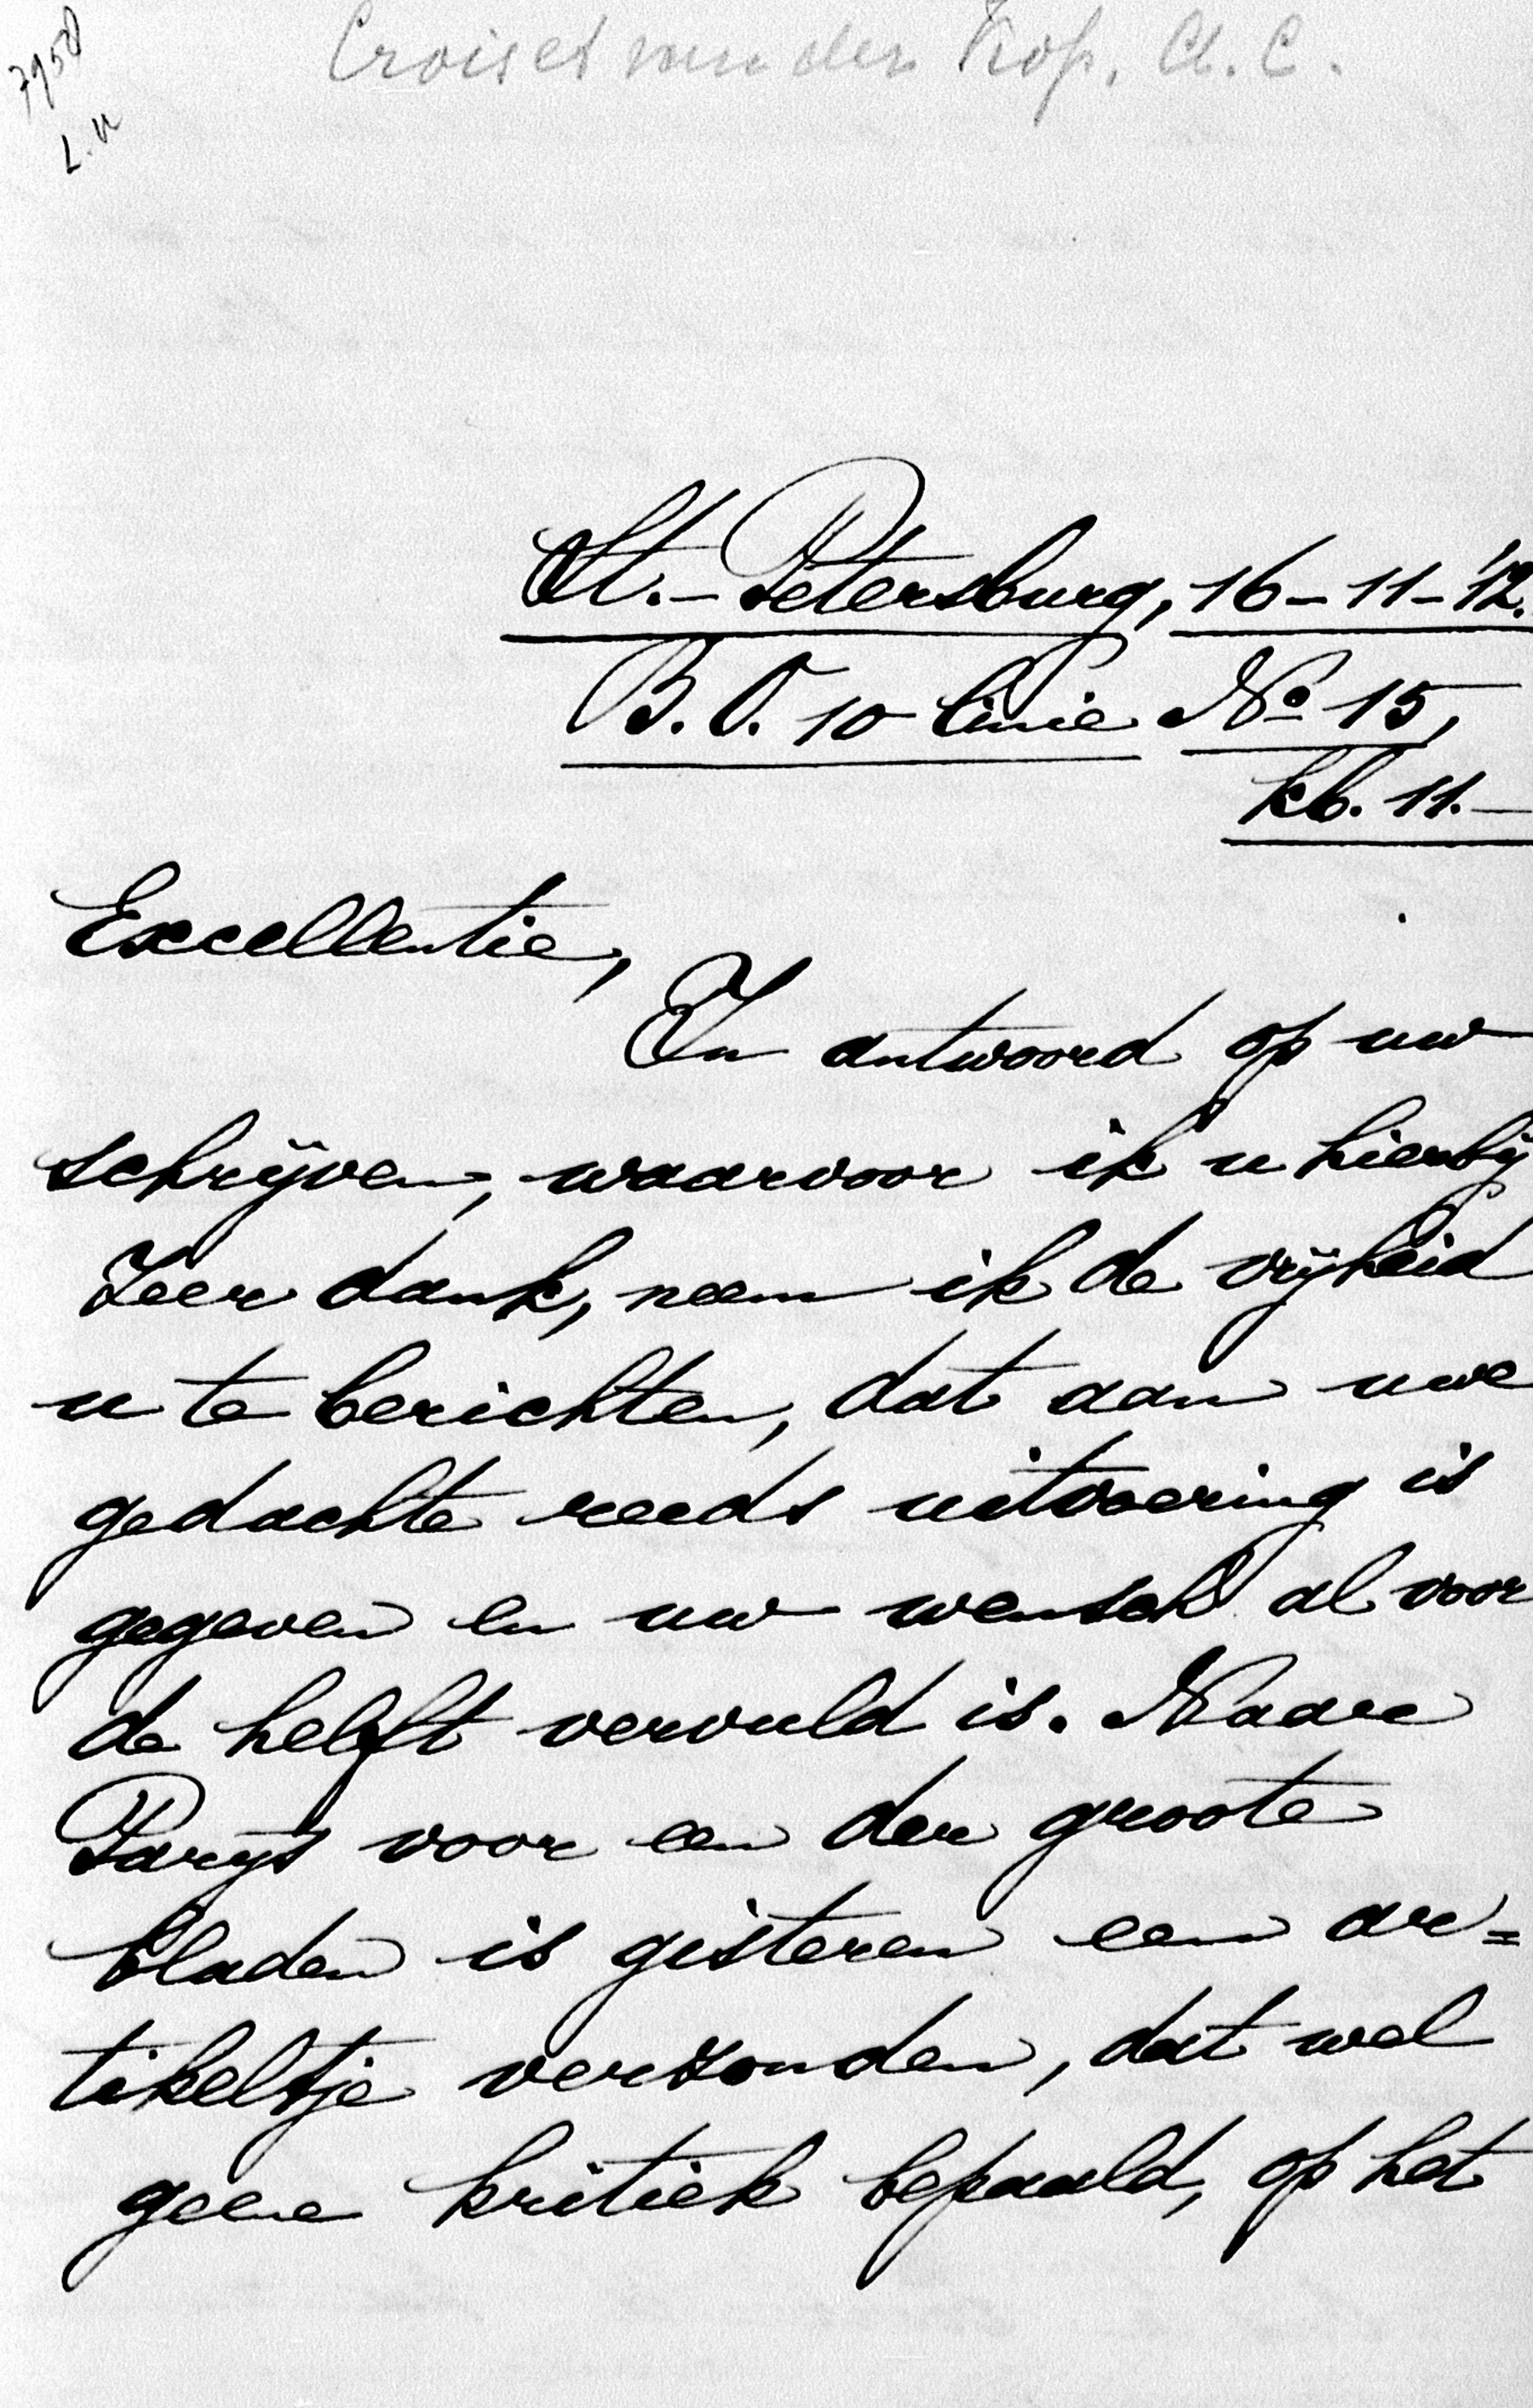 7950
L.U
Croiset van der Kop. A. C.
St.-Petersburg, 16-11-'12.
B.O. 10 linie No 15,
kb. 11.-
Excellentie,
In antwoord op uw
schrijven, waarvoor ik u hierbij
zeer dank, neem ik de vrijheid
u te berichten, dat aan uwe
gedachte reeds uitvoering is
gegeven en uw wensch al voor
de helft vervuld is. Naar
Parijs voor een der groote
bladen is gisteren een ar=
tikeltje verzonden, dat wel
geene kritiek bepaald, op het